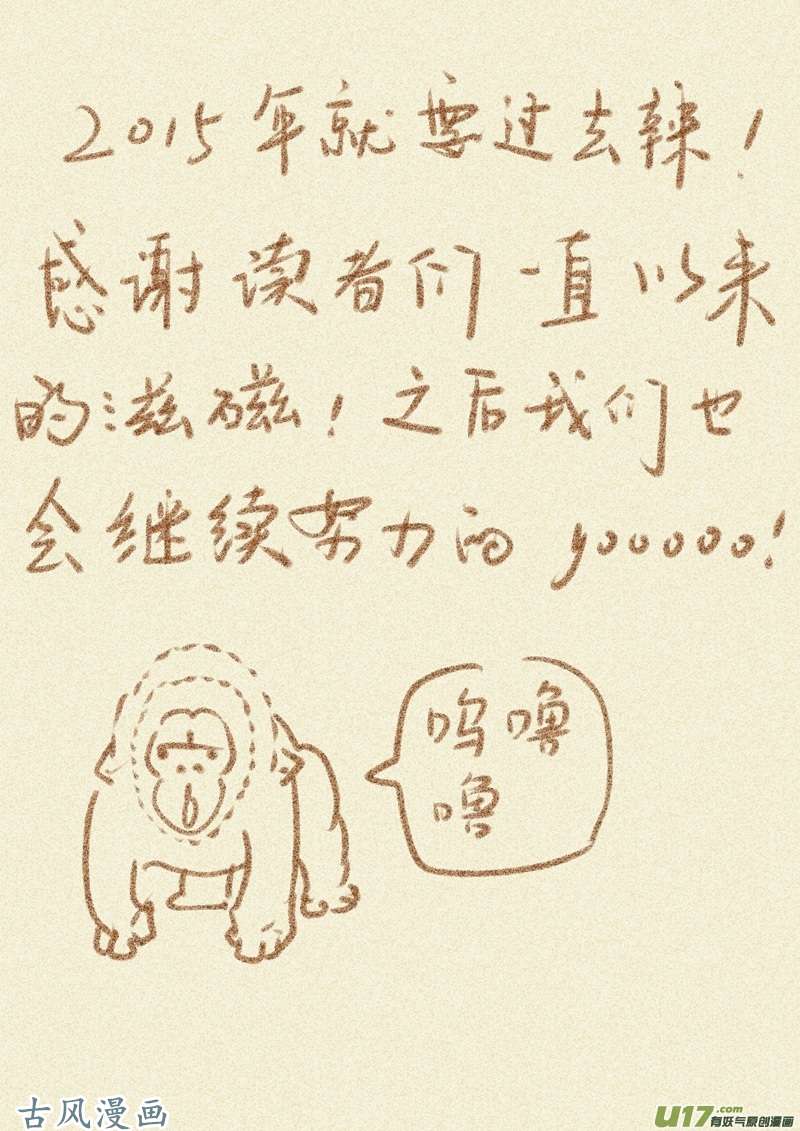 2015年就要过去辣！
感谢读者们一直以来
的滋磁！之后我们也
会继续努力的 yooooo！
呜噜
噜
古风漫画
U17.com
有妖气原创漫画